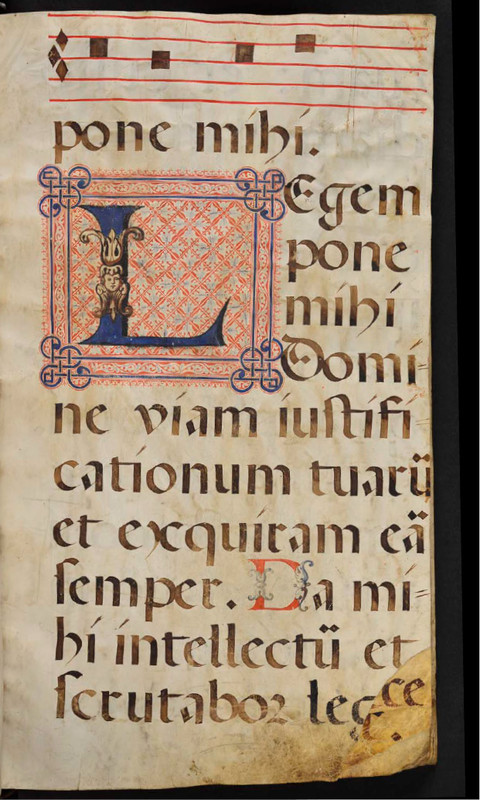 pone mihi.
LEgem
pone
mihi
Domi=
ne viam iustifi
cationum tuarū
et exquiram eā
semper. Da mi=
hi intellectū et
scrutabor leg